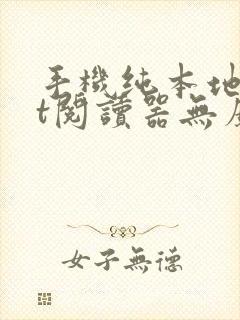 手機純本地
t閱讀器無廣
女子無德